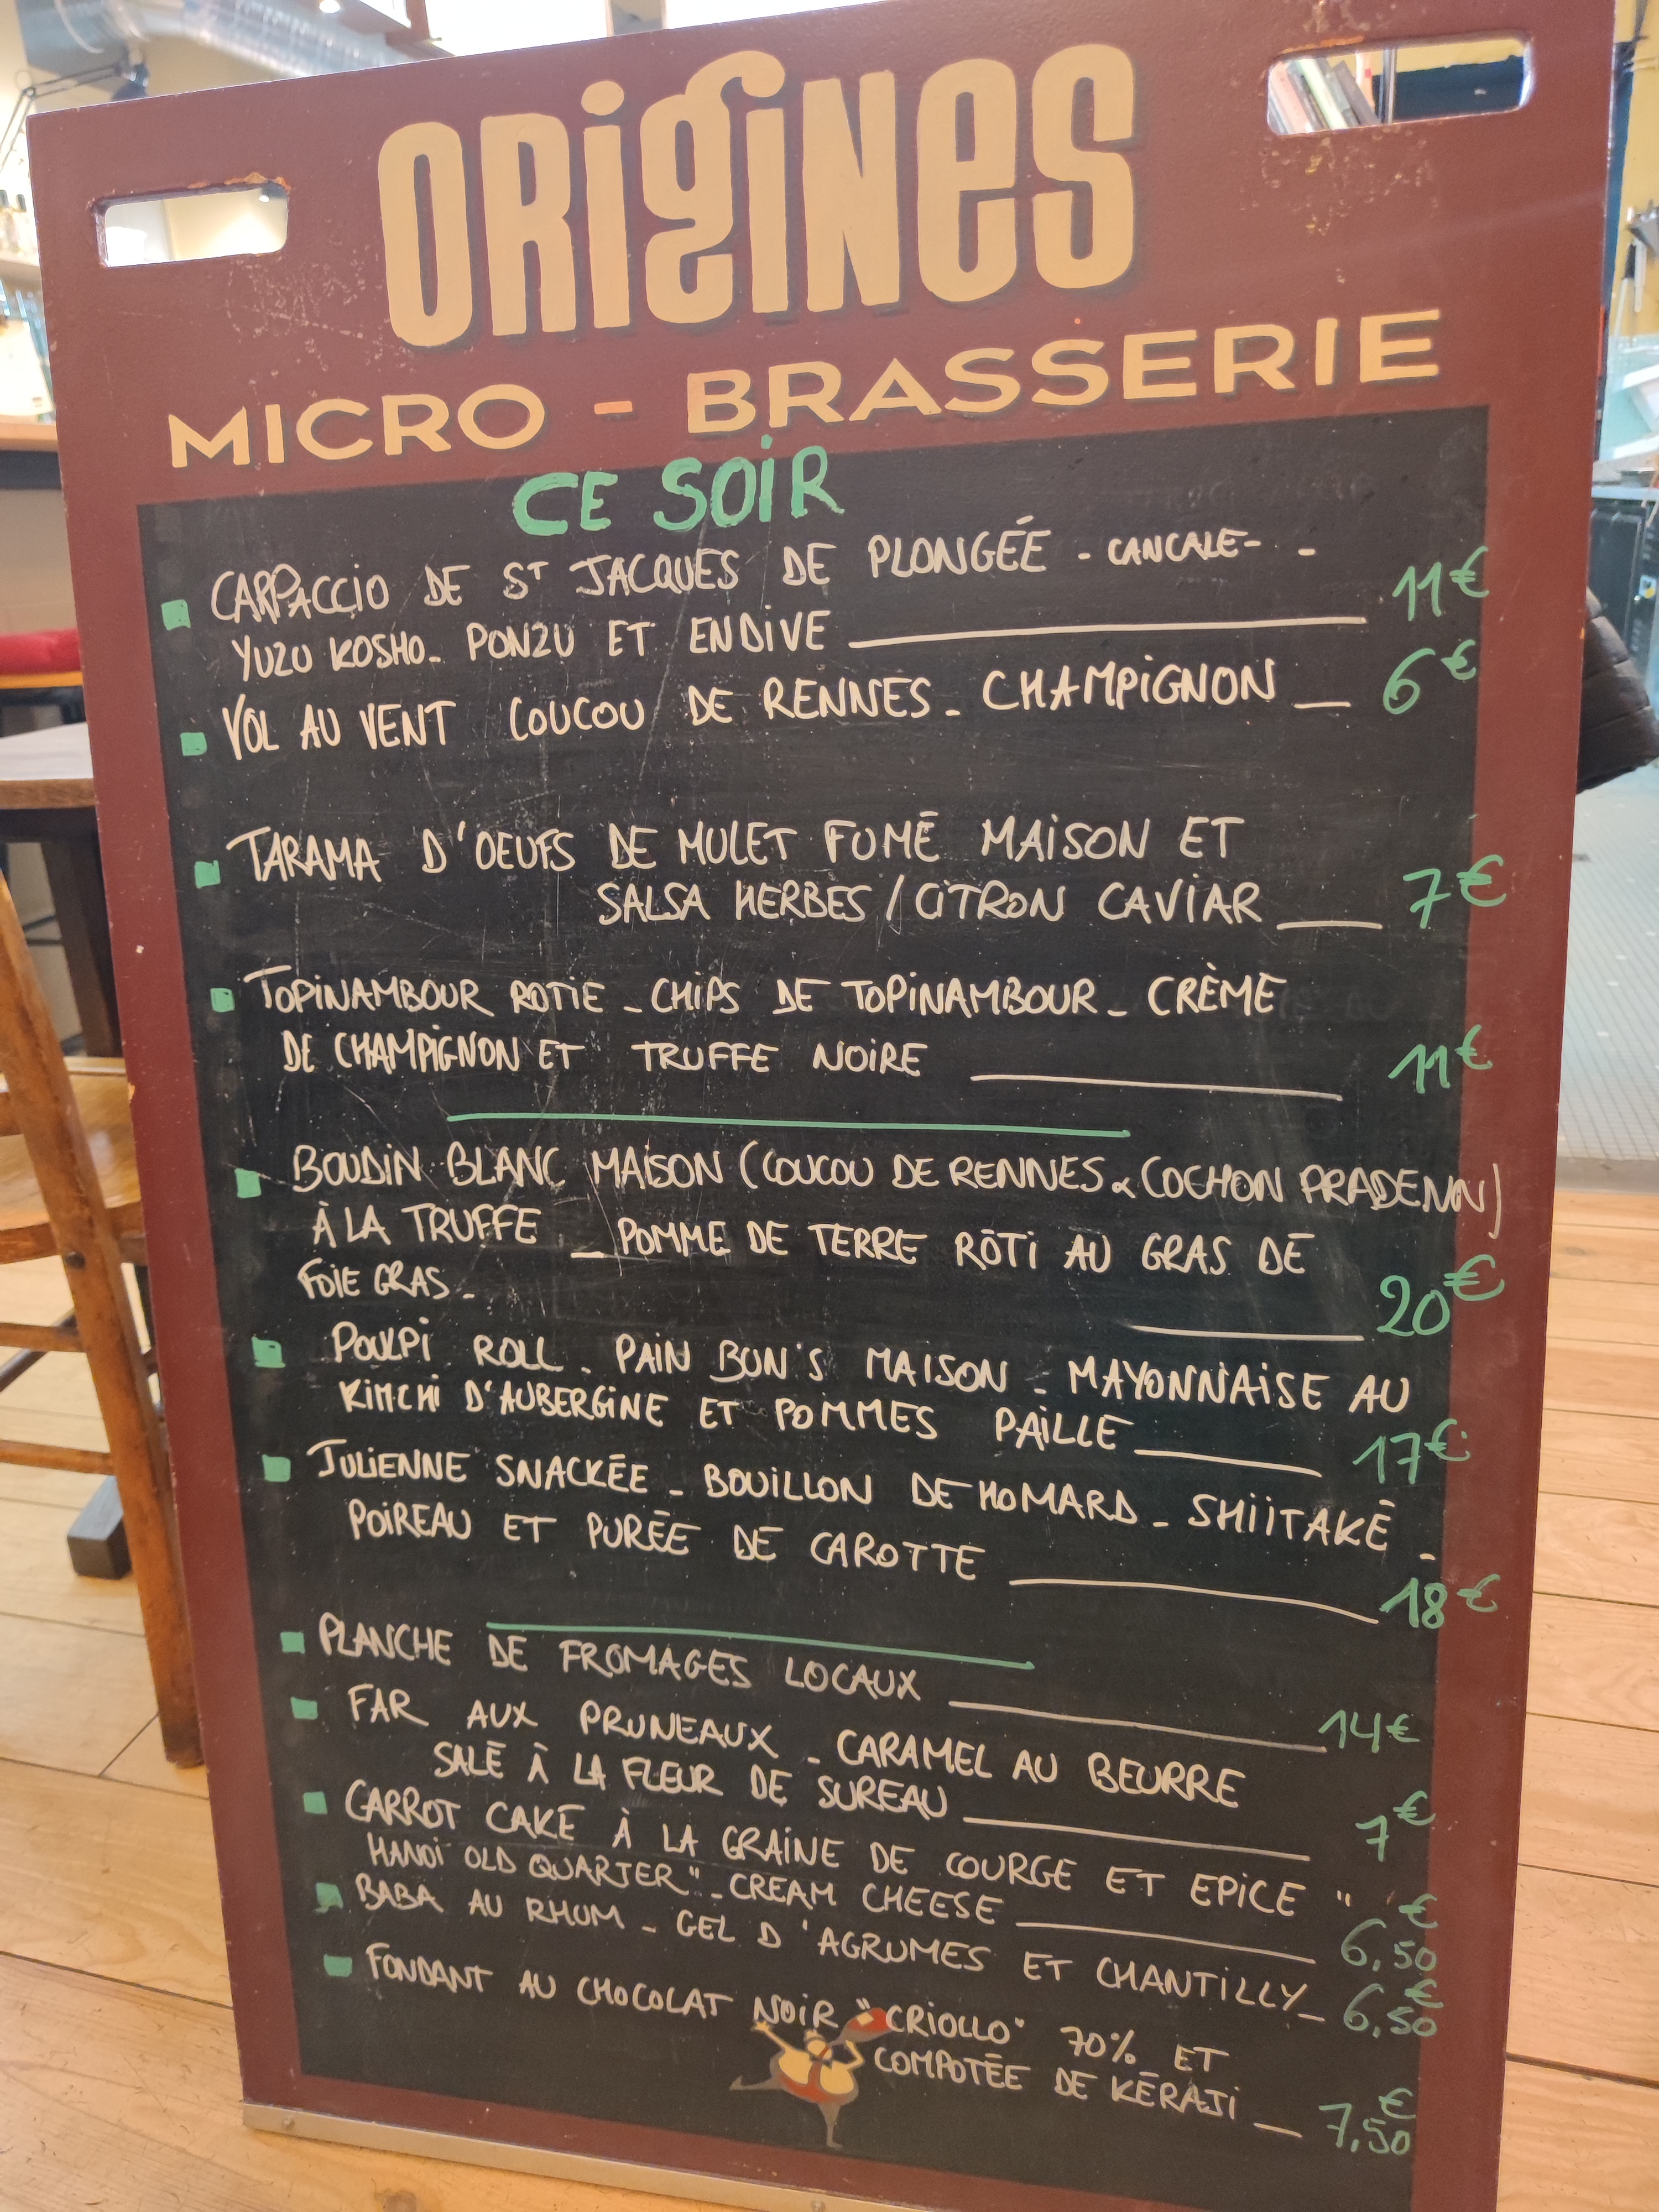 ORIGINES
MICRO - BRASSERIE
CE SOIR
CARPACCIO DE ST JACQUES DE PLONGÉE - CANCALE - -
YUZU KOSHO - PONZU ET ENDIVE 11€
VOL AU VENT COUCOU DE RENNES - CHAMPIGNON 6€
TARAMA D'OEUFS DE MULET FUMÉ MAISON ET
SALSA HERBES / CITRON CAVIAR 7€
TOPINAMBOUR ROTIE - CHIPS DE TOPINAMBOUR - CRÈME
DE CHAMPIGNON ET TRUFFE NOIRE 11€
BOUDIN BLANC MAISON (COUCOU DE RENNES & COCHON PRADENN)
À LA TRUFFE - POMME DE TERRE RÔTI AU GRAS DE
FOIE GRAS - 20€
POULPI ROLL - PAIN BUN'S MAISON - MAYONNAISE AU
KIMCHI D'AUBERGINE ET POMMES PAILLE 17€
JULIENNE SNACKÉE - BOUILLON DE HOMARD - SHIITAKÉ -
POIREAU ET PURÉE DE CAROTTE 18€
PLANCHE DE FROMAGES LOCAUX 14€
FAR AUX PRUNEAUX - CARAMEL AU BEURRE
SALÉ À LA FLEUR DE SUREAU 7€
CARROT CAKE À LA GRAINE DE COURGE ET EPICE "
HANOÏ OLD QUARTER" - CREAM CHEESE 6,50€
BABA AU RHUM - GEL D'AGRUMES ET CHANTILLY - 6,50€
FONDANT AU CHOCOLAT NOIR "CRIOLLO" 70% ET
COMPOTÉE DE KÉRAJI - 7,50€